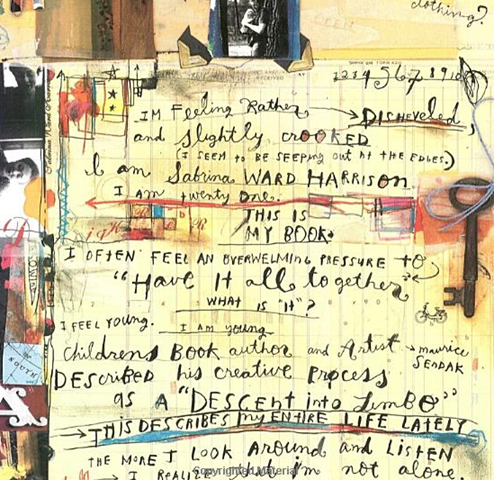 clothing?
1 2 3 4 5 6 7 8 9 10
I'M FEELING Rather → DISHEVELED,
and slightly CROOKED
(I SEEM TO BE SEEPING OUT AT THE EDGES.)
I am Sabrina WARD HARRISON.
I Am twenty one.
THIS IS
MY BOOK.
I OFTEN FEEL AN OVERWELMING PRESSURE TO
"Have It all together"
WHAT IS "IT"?
I FEEL YOUNG. I AM young
Childrens Book author and Artist → maurice
SENDAK
DESCRIBED his creative Process
as A "DESCENT into LIMBO"
→ THIS DESCRIBES my ENTIRE LIFE LATELY
THE MORE I LOOK Around and LISTEN
→ I REALIZE that I'm not alone.
Copyrighted Material